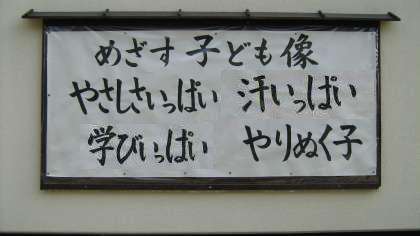 めざす子ども像
やさしさいっぱい 汗いっぱい
学びいっぱい やりぬく子